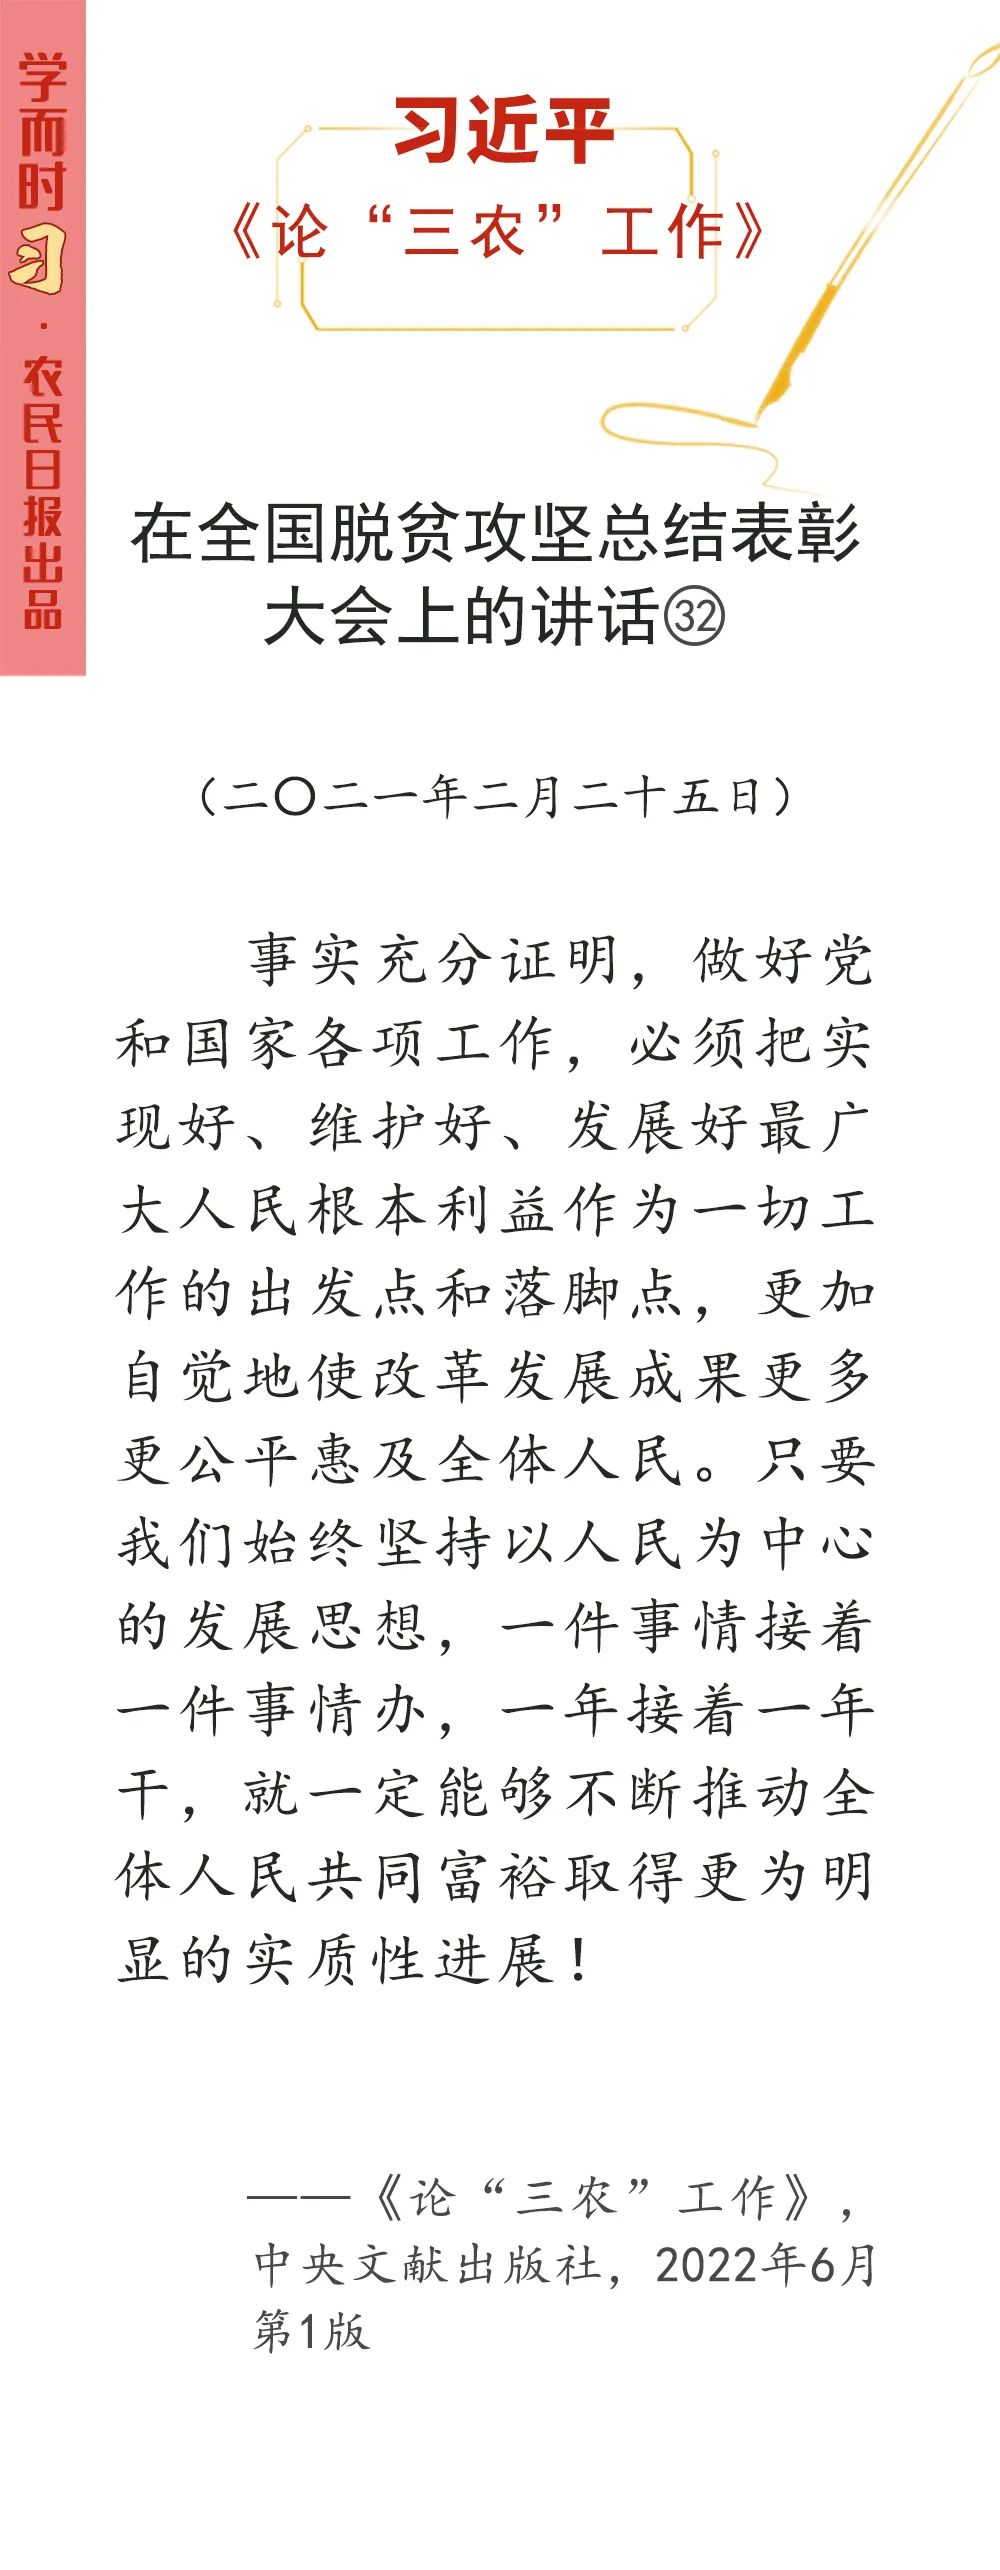 学而时习·农民日报出品
习近平
《论“三农”工作》
在全国脱贫攻坚总结表彰
大会上的讲话㉜
（二〇二一年二月二十五日）
事实充分证明，做好党
和国家各项工作，必须把实
现好、维护好、发展好最广
大人民根本利益作为一切工
作的出发点和落脚点，更加
自觉地使改革发展成果更多
更公平惠及全体人民。只要
我们始终坚持以人民为中心
的发展思想，一件事情接着
一件事情办，一年接着一年
干，就一定能够不断推动全
体人民共同富裕取得更为明
显的实质性进展！
——《论“三农”工作》，
中央文献出版社，2022年6月
第1版